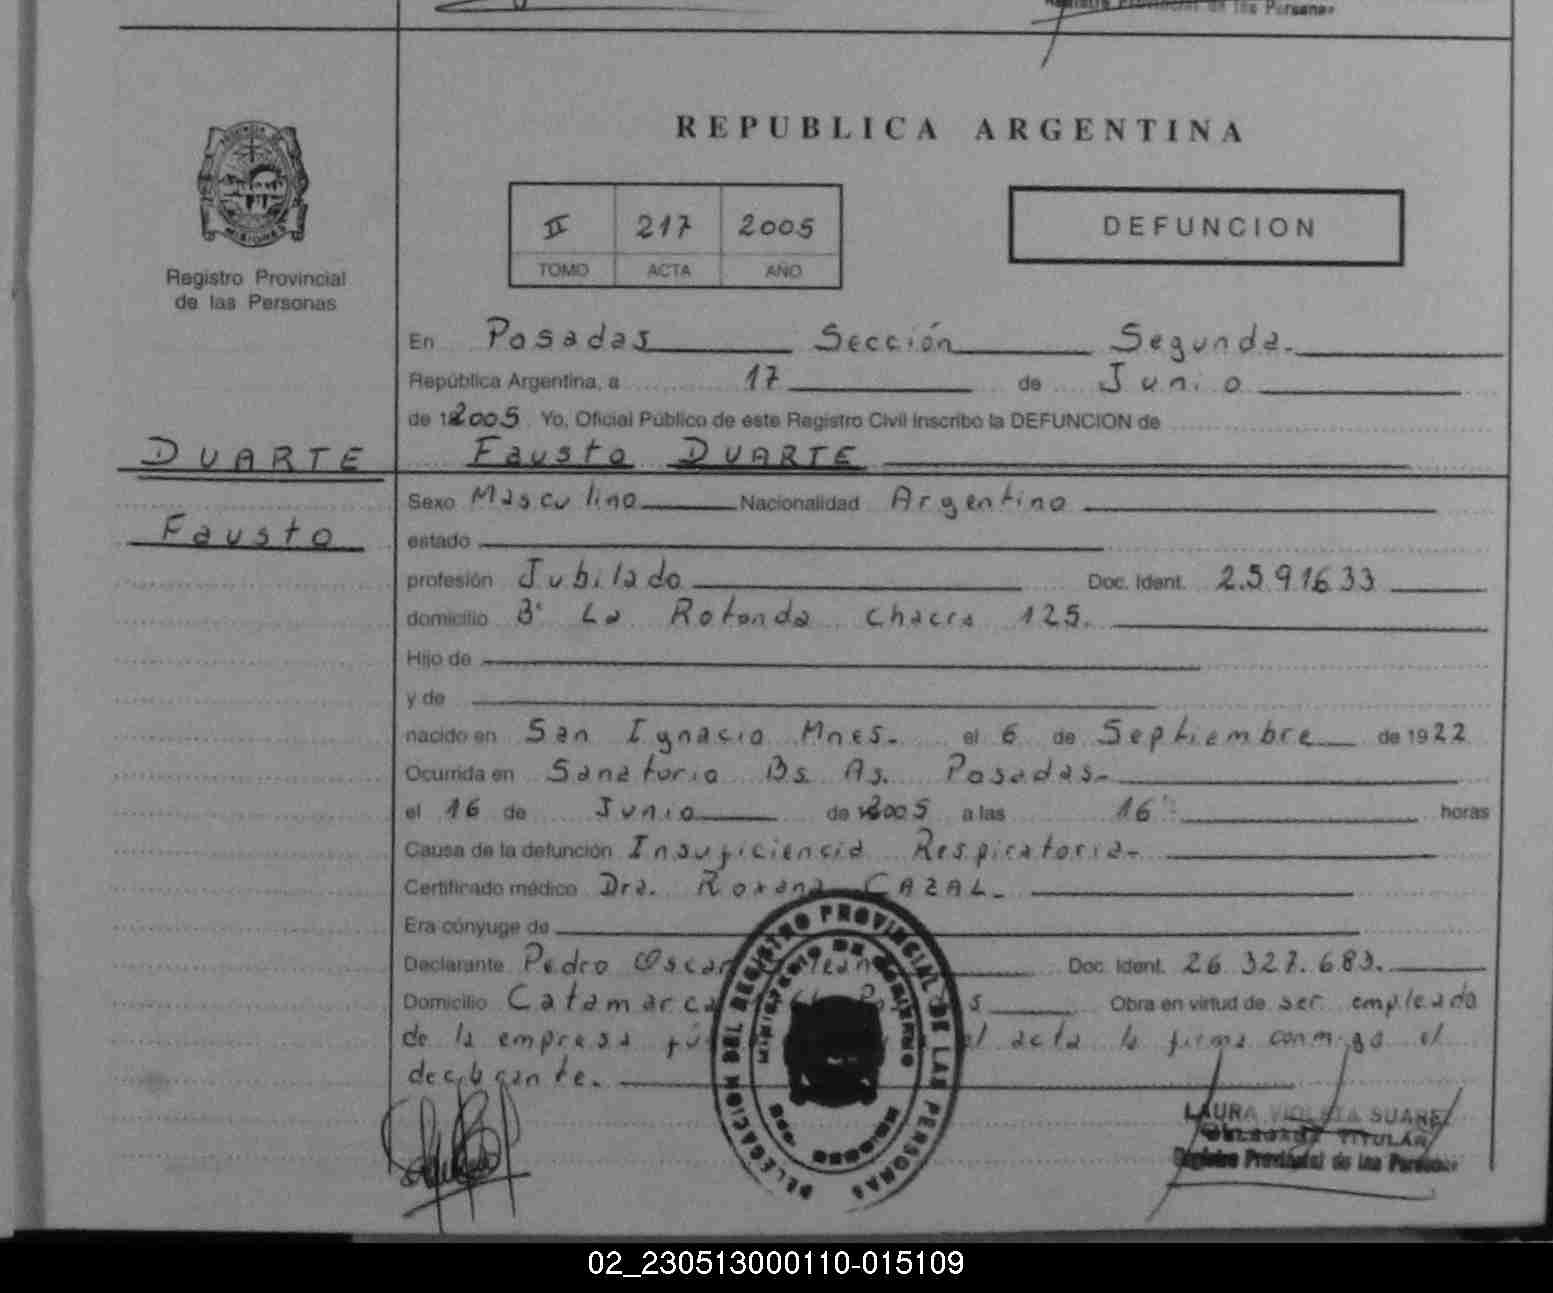 Registro Provincial de las Personas
REPUBLICA ARGENTINA
II 217 2005
TOMO ACTA AÑO
DEFUNCION
Registro Provincial
de las Personas
En Posadas Sección Segunda.
República Argentina, a 17 de Junio
de 2005 Yo, Oficial Público de este Registro Civil inscribo la DEFUNCION de
DUARTE
Fausto DUARTE
Fausto
Sexo Masculino Nacionalidad Argentino
estado
profesión Jubilado Doc. Ident. 2.591633
domicilio B° La Rotonda Chacra 125.
Hijo de
y de
nacido en San Ignacio Mnes. el 6 de Septiembre de 1922
Ocurrida en Sanatorio Bs. As. Posadas-
el 16 de Junio de 2005 a las 16 horas
Causa de la defunción Insuficiencia Respiratoria-
Certificado médico Dra. Roxana CAZAL.
Era cónyuge de
Declarante Pedro Oscar Doc. Ident. 26.327.683.
Domicilio Catamarca Obra en virtud de ser empleado
de la empresa el acta la firma conmigo el
declarante.
DELEGACION DEL REGISTRO PROVINCIAL DE LAS PERSONAS
MINISTERIO DE GOBIERNO
LAURA VIOLETA SUAREZ
DELEGADA TITULAR
Registro Provincial de las Personas
02_230513000110-015109